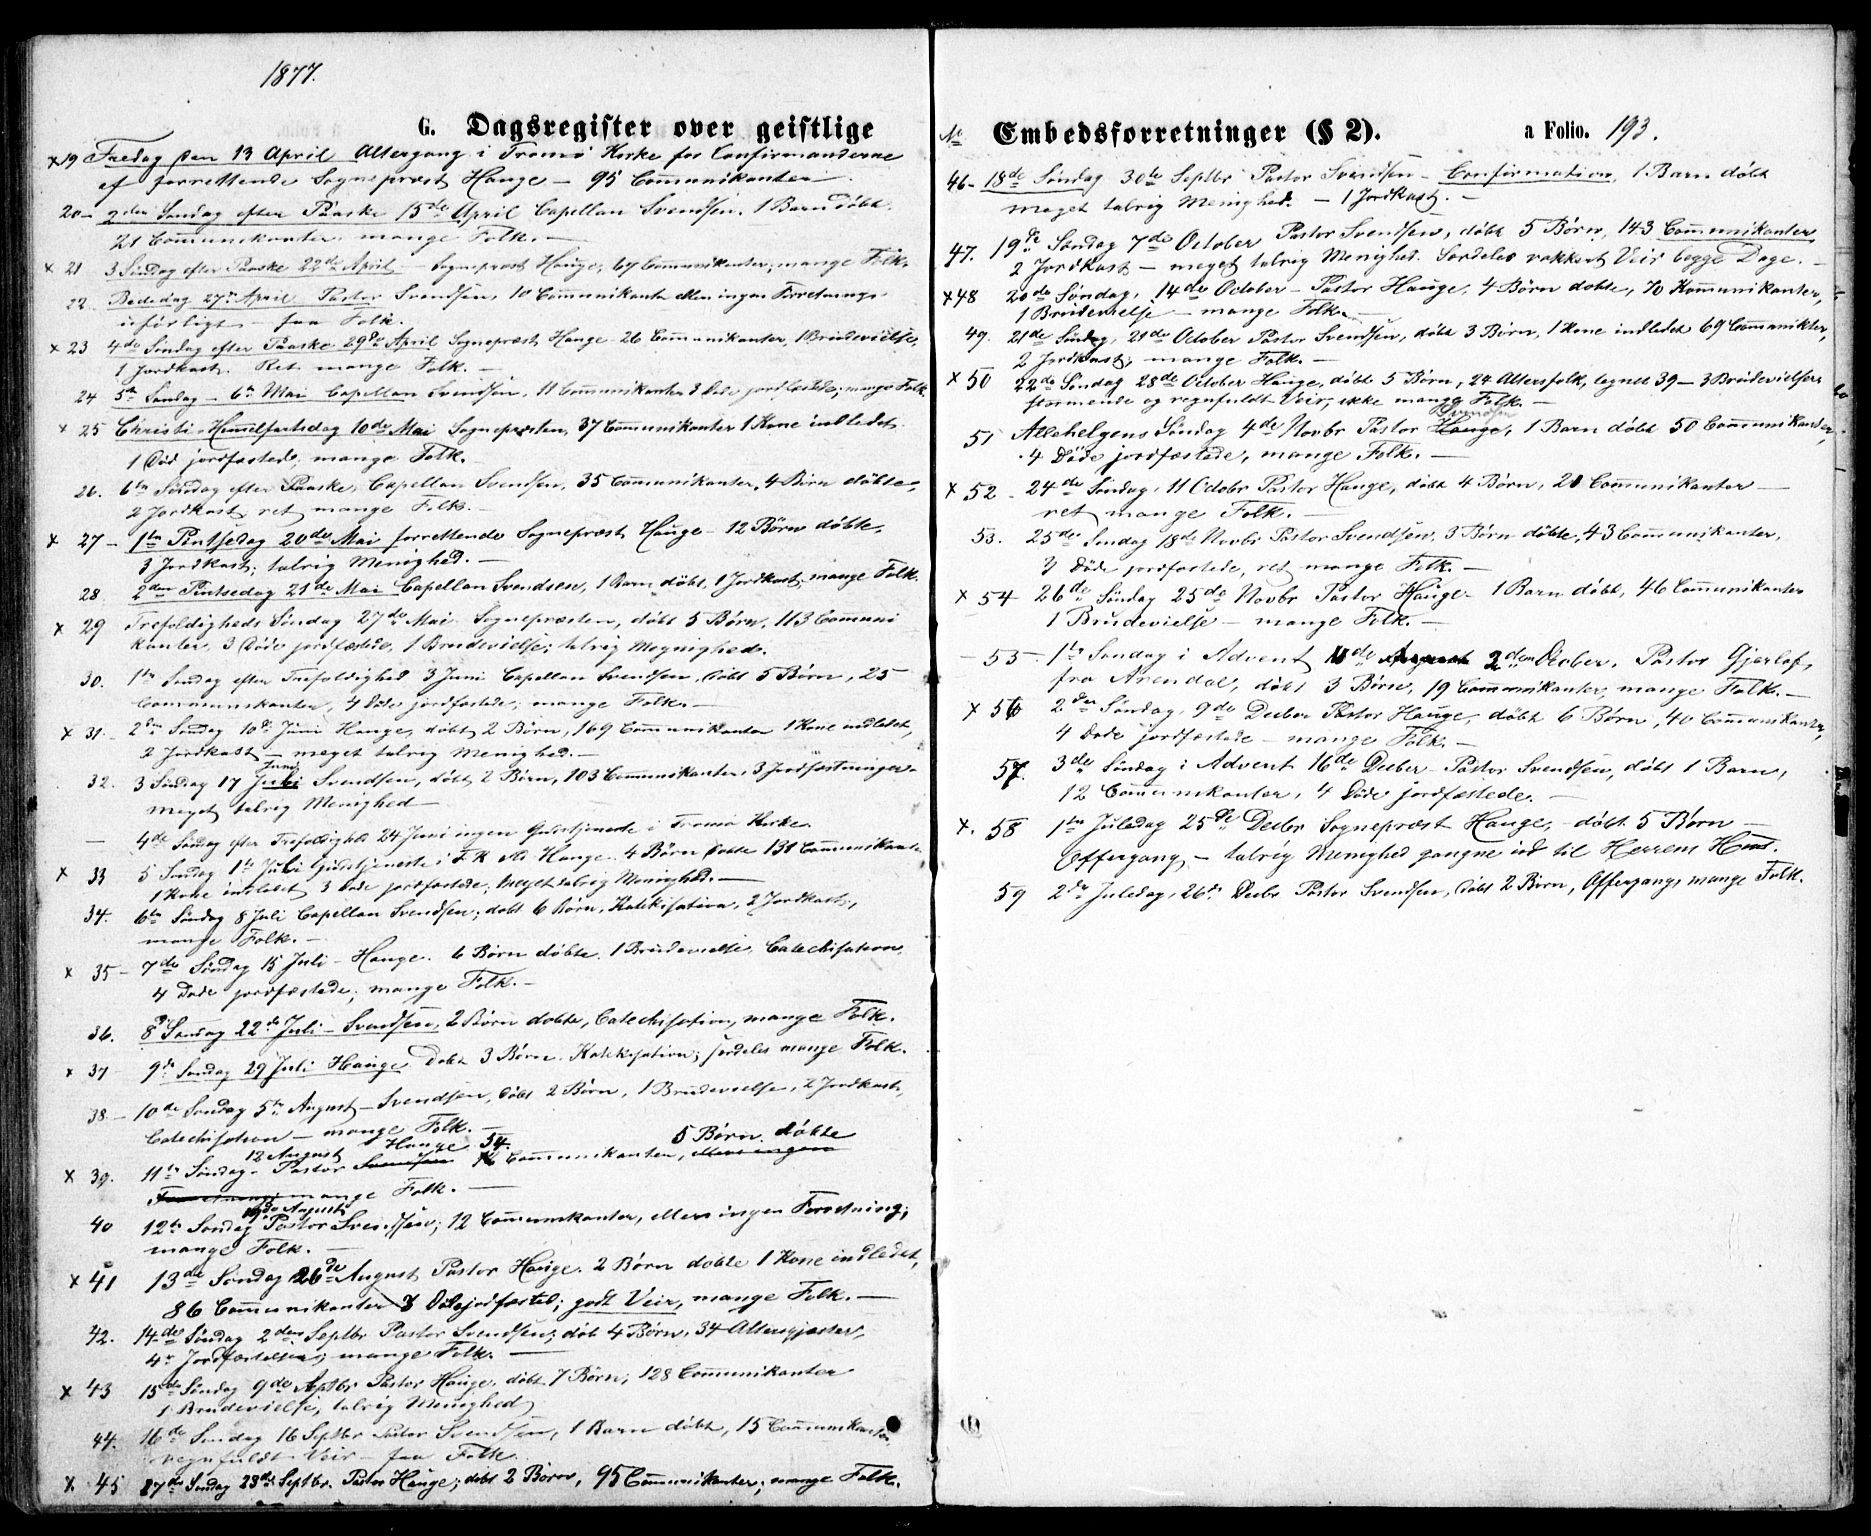 1877.
G. Dagsregister over geistlige
x 19 Fredag den 13 April Altergang i Tromø Kirke for Confirmanderne
af forrettende Sognepræst Hauge – 95 Communikanter.
20 – 2den Søndag efter Paaske 15de April Capellan Svendsen. 1 Barn døbt.
21 Communikanter. mange Folk. –
x 21 3 Søndag efter Paaske 22de April – Sognepræst Hauge, 67 Communikanter; mange Folk.
22. Bededag 27de April Pastor Svendsen, 10 Communikanter ellers ingen Forretninger
– faa Folk.
x 23 4de Søndag efter Paaske 29de April Sognepræst Hauge 26 Communikanter, 1 Brudevielse,
1 Jordkast. Ret mange Folk. –
24 5te Søndag – 6te Mai Capellan Svendsen, 11 Communikanter 3 Døde jordfæstede; mange Folk
x 25 Christi Himmelfartsdag 10de Mai Sognepræsten, 37 Communikanter 1 Kone indledet.
1 Død jordfæstede, mange Folk.
26. 6te Søndag efter Paaske, Capellan Svendsen, 35 Communikanter, 4 Børn døbte,
2 Jordkast ret mange Folk. –
x 27 – 1ste Pintsedag 20de Mai forrettende Sognepræst Hauge – 12 Børn døbte,
3 Jordkast; talrig Menighed. –
28 2den Pintsedag 21de Mai Capellan Svendsen, 1 Barn døbt, 1 Jordkast, mange Folk.
x 29 Trefoldigheds Søndag 27de Mai Sognepræsten, døbt 5 Børn, 113 Communi
kanter, 3 Døde jordfæstede, 1 Brudevielse; talrig Menighed.
30. 1ste Søndag efter Trefoldighed 3 Juni Capellan Svendsen, døbt 5 Børn, 25
Communikanter, 4 Døde jordfæstede; mange Folk. –
x 31 – 2den Søndag 10de Juni Hauge, døbt 2 Børn, 169 Communikanter 1 Kone indledet,
2 Jordkast – meget talrig Menighed. –
Juni
32. 3 Søndag 17 Juli Svendsen, døbt 2 Børn, 103 Communikanter, 3 Jordfæstninger.
meget talrig Menighed –
– 4de Søndag efter Trefoldighed 24 Juni ingen Gudstjeneste i Tromø Kirke.
x 33 5 Søndag 1ste Juli Gudstjeneste i T. K. ved Hauge. 4 Børn døbte 131 Communikant.
1 Kone indledet 3 Døde jordfæstede; meget talrig Menighed. –
34. 6te Søndag 8 Juli Capellan Svendsen; døbt 6 Børn, Katekisation, 2 Jordkast,
mange Folk. –
x 35 – 7de Søndag 15 Juli – Hauge. 6 Børn døbte, 1 Brudevielse, Catechisation,
4 Døde jordfæstede; mange Folk. –
36. 8de Søndag 22de Juli – Svendsen, 2 Børn døbte, Catechisation, mange Folk.
x 37 9de Søndag 29 Juli Hauge døbt 3 Børn. Katekisation; særdeles mange Folk.
38. – 10de Søndag 5te August – Svendsen, døbt 2 Børn, 1 Brudevielse, 2 Jordkast,
Catechisation – mange Folk. –
12 August Hauge 34. 5 Børn døbte
x 39. 11te Søndag. Pastor Svendsen Communikanter, ellers ingen
Forretning; mange Folk. –
19de August
40 12te Søndag Pastor Svendsen; 12 Communikanter, ellers ingen Forretning;
mange Folk. –
x 41 13de Søndag 26de August Pastor Hauge. 2 Børn døbte 1 Kone indledet,
86 Communikanter 3 Døde jordfæsted; godt Veir, mange Folk. –
42. 14de Søndag 2den Septbr Pastor Svendsen; døbt 4 Børn, 34 Altergjæster,
4 Jordfæstelser; mange Folk. –
x 43 15de Søndag 9de Sptbr Pastor Hauge, døbt 7 Børn, 128 Communikanter
1 Brudevielse; talrig Menighed
44. 16de Søndag 16 Septbr Pastor Svendsen, 1 Barn døbt, 15 Communikanter,
regnfuldt Veir – faa Folk.
x 45 17de Søndag 23de Septbr. Pastor Hauge; døbt 2 Børn, 95 Communikanter; mange Folk.
No Embedsforretninger (§ 2). a Folio. 193.
46 – 18de Søndag 30te Septbr Pastor Svendsen – Confirmation, 1 Barn døbt
meget talrig Menighed. – 1 Jordkast. –
47. 19de Søndag 7de October Pastor Svendsen, døbt 5 Børn, 143 Communikanter
2 Jordkast – meget talrig Menighed. Særdeles vakkert Veir begge Dage. –
x 48 20de Søndag, 14de October – Pastor Hauge, 4 Børn døbte, 70 Kommunikanter,
1 Brudevielse – mange Folk. –
49. 21de Søndag, 21de October Pastor Svendsen, døbt 3 Børn, 1 Kone indledet 69 Communikter,
2 Jordkast; mange Folk. –
x 50 22de Søndag 28de October Hauge, døbt 5 Børn, 24 Altersfolk, tegnet 39 – 3 Brudevielser
stormende og regnfuldt Veir; ikke mange Folk. –
Svendsen
51 Allehelgens Søndag 4de Novbr Pastor Hauge, 1 Barn døbt 50 Communikanter,
4 Døde jordfæstede, mange Folk. –
x 52 – 24de Søndag, 11 Octobr Pastor Hauge, døbt 4 Børn, 20 Communikanter –
ret mange Folk. –
53. 25de Søndag 18de Novbr Pastor Svendsen, 3 Børn døbte, 43 Communikanter,
3 Døde jordfæstede, ret mange Folk. –
x 54 26de Søndag 25de Novbr Pastor Hauge – 1 Barn døbt, 46 Communikanter
1 Brudevielse – mange Folk. –
– 55 – 1ste Søndag i Advent 2den Pastor Gjerløf,
fra Arendal, døbt 3 Børn, 19 Communikanter, mange Folk. –
x 56 2den Søndag, 9de Decber Pastor Hauge, døbt 6 Børn, 40 Communikanter,
4 Døde jordfæstede – mange Folk. –
57. 3de Søndag i Advent 16de Decber – Pastor Svendsen, døbt 1 Barn,
12 Communikanter, 4 Døde jordfæstede. –
x. 58 1ste Juledag 25de Decbr Sognepræst Hauge, døbt 5 Børn –
Offergang – talrig Menighed gangne ind til Herrens Huus.
59 2den Juledag, 26de Decbr Pastor Svendsen, døbt 2 Børn, Offergang; mange Folk.